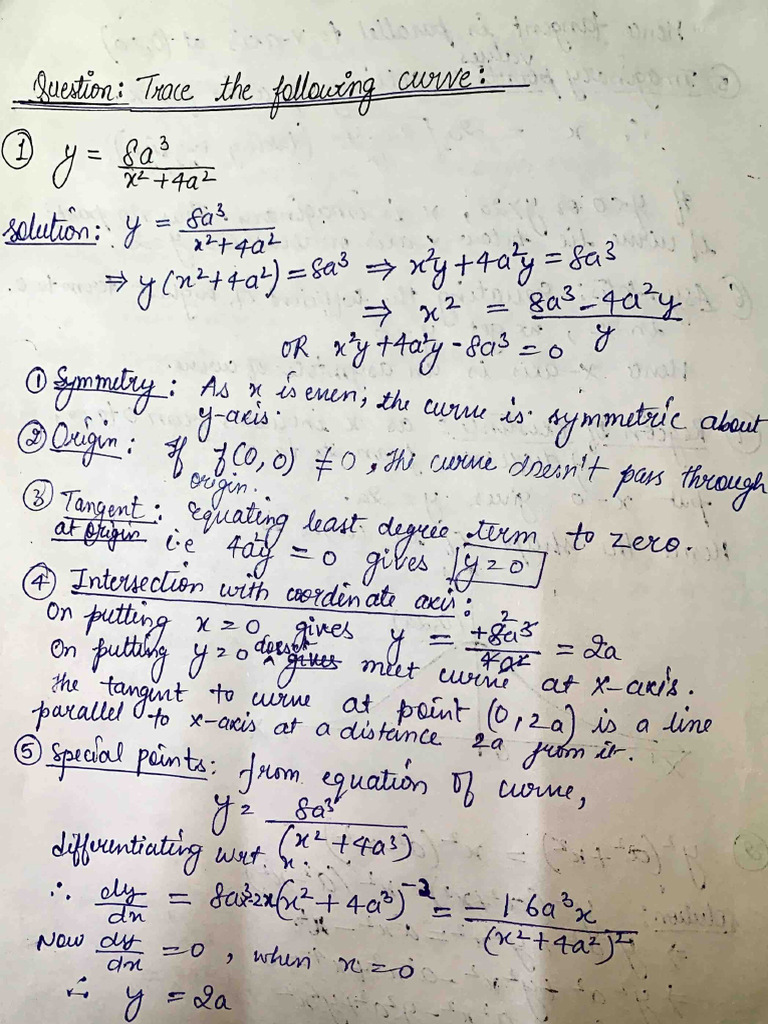 Question: Trace the following curve:
① y = 8a³/(x²+4a²)
Solution: y = 8a³/(x²+4a²)
⇒ y(x²+4a²) = 8a³ ⇒ x²y+4a²y = 8a³
⇒ x² = (8a³-4a²y)/y
OR x²y+4a²y-8a³ = 0
① Symmetry: As x is even; the curve is symmetric about
y-axis.
② Origin: If f(0,0) ≠ 0, the curve doesn't pass through
origin.
③ Tangent: equating least degree term to zero.
at origin i.e 4a²y = 0 gives y = 0
④ Intersection with coordinate axis:
On putting x = 0 gives y = +8a³/4a² = 2a
On putting y = 0 doesn't meet curve at x-axis.
The tangent to curve at point (0,2a) is a line
parallel to x-axis at a distance 2a from it.
⑤ Special points: from equation of curve,
y = 8a³/(x²+4a³)
differentiating wrt x.
∴ dy/dx = 8a³·2x(x²+4a³)⁻² = -16a³x/(x²+4a²)²
Now dy/dx = 0, when x = 0
∴ y = 2a